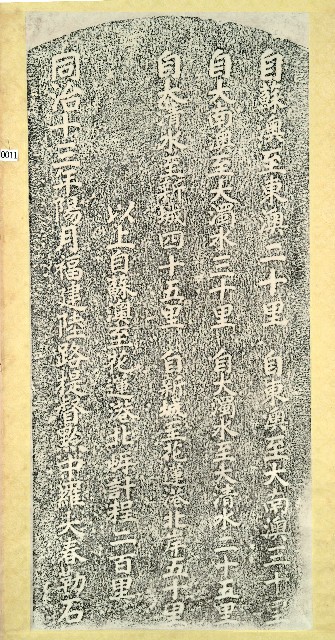 自蘇澳至東澳二十里　自東澳至大南澳三十里
自大南澳至大濁水三十里　自大濁水至大清水二十五里
自大清水至新城四十五里　自新城至花蓮港北岸五十里
以上自蘇澳至花蓮港北岸計程二百里
同治十三年陽月福建陸路提督黔中羅大春勒石
0011